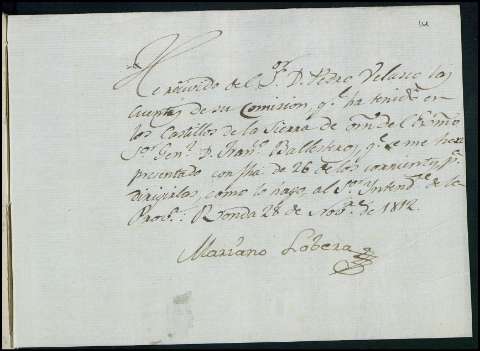 He recivido del Sor. Dn. Pedro Velasco las
cuentas de su Comision, qe. ha tenido en
los Castillos de la Sierra de orn. del Exmo
Sor. Genl. Dn. Franco. Ballesteros, qe. se me han
presentado con fha. de 26 de los corrientes pa.
dirigirlas, como lo hago al Sor. Intende. de la
Prova. Ronda 28 de Nove. de 1812.
Mariano Lobera